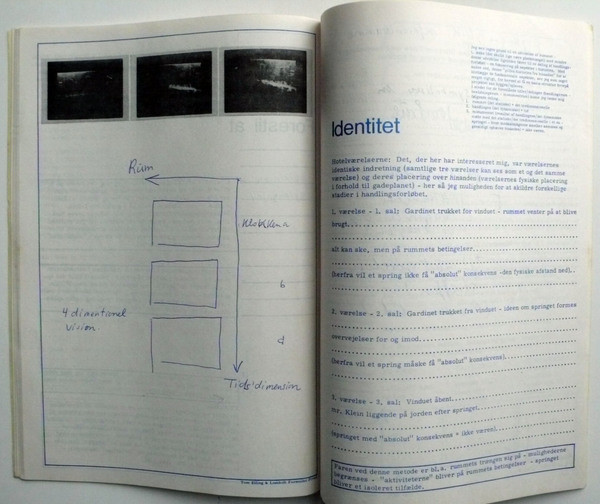 Rum
Klokken a
b
d
4 dimentionel
vision.
Tids dimension
Identitet
Hotelværelserne: Det, der her har interesseret mig, var værelsernes
identiske indretning (samtlige tre værelser kan ses som et og det samme
værelse) og deres placering over hinanden (værelsernes fysiske placering
i forhold til gadeplanet) - her så jeg muligheden for at skildre forskellige
stadier i handlingsforløbet.
1. værelse - 1. sal: Gardinet trukket for vinduet - rummet venter på at blive
brugt
alt kan ske, men på rummets betingelser.
(Herfra vil et spring ikke få "absolut" konsekvens -den fysiske afstand nød).
2. værelse - 2. sal: Gardinet trukket fra vinduet - ideen om springet formes
overvejelser for og imod.
(Herfra vil et spring måske få "absolut" konsekvens).
3. værelse - 3. sal: Vinduet åbent.
mr. Klein liggende på jorden efter springet.
(Springet med "absolut" konsekvens = ikke væren).
Faren ved denne metode er bl.a. rummets trængen sig på - mulighederne
begrænses - "aktiviteterne" bliver på rummets betingelser - springet
bliver et isoleret tilfælde.